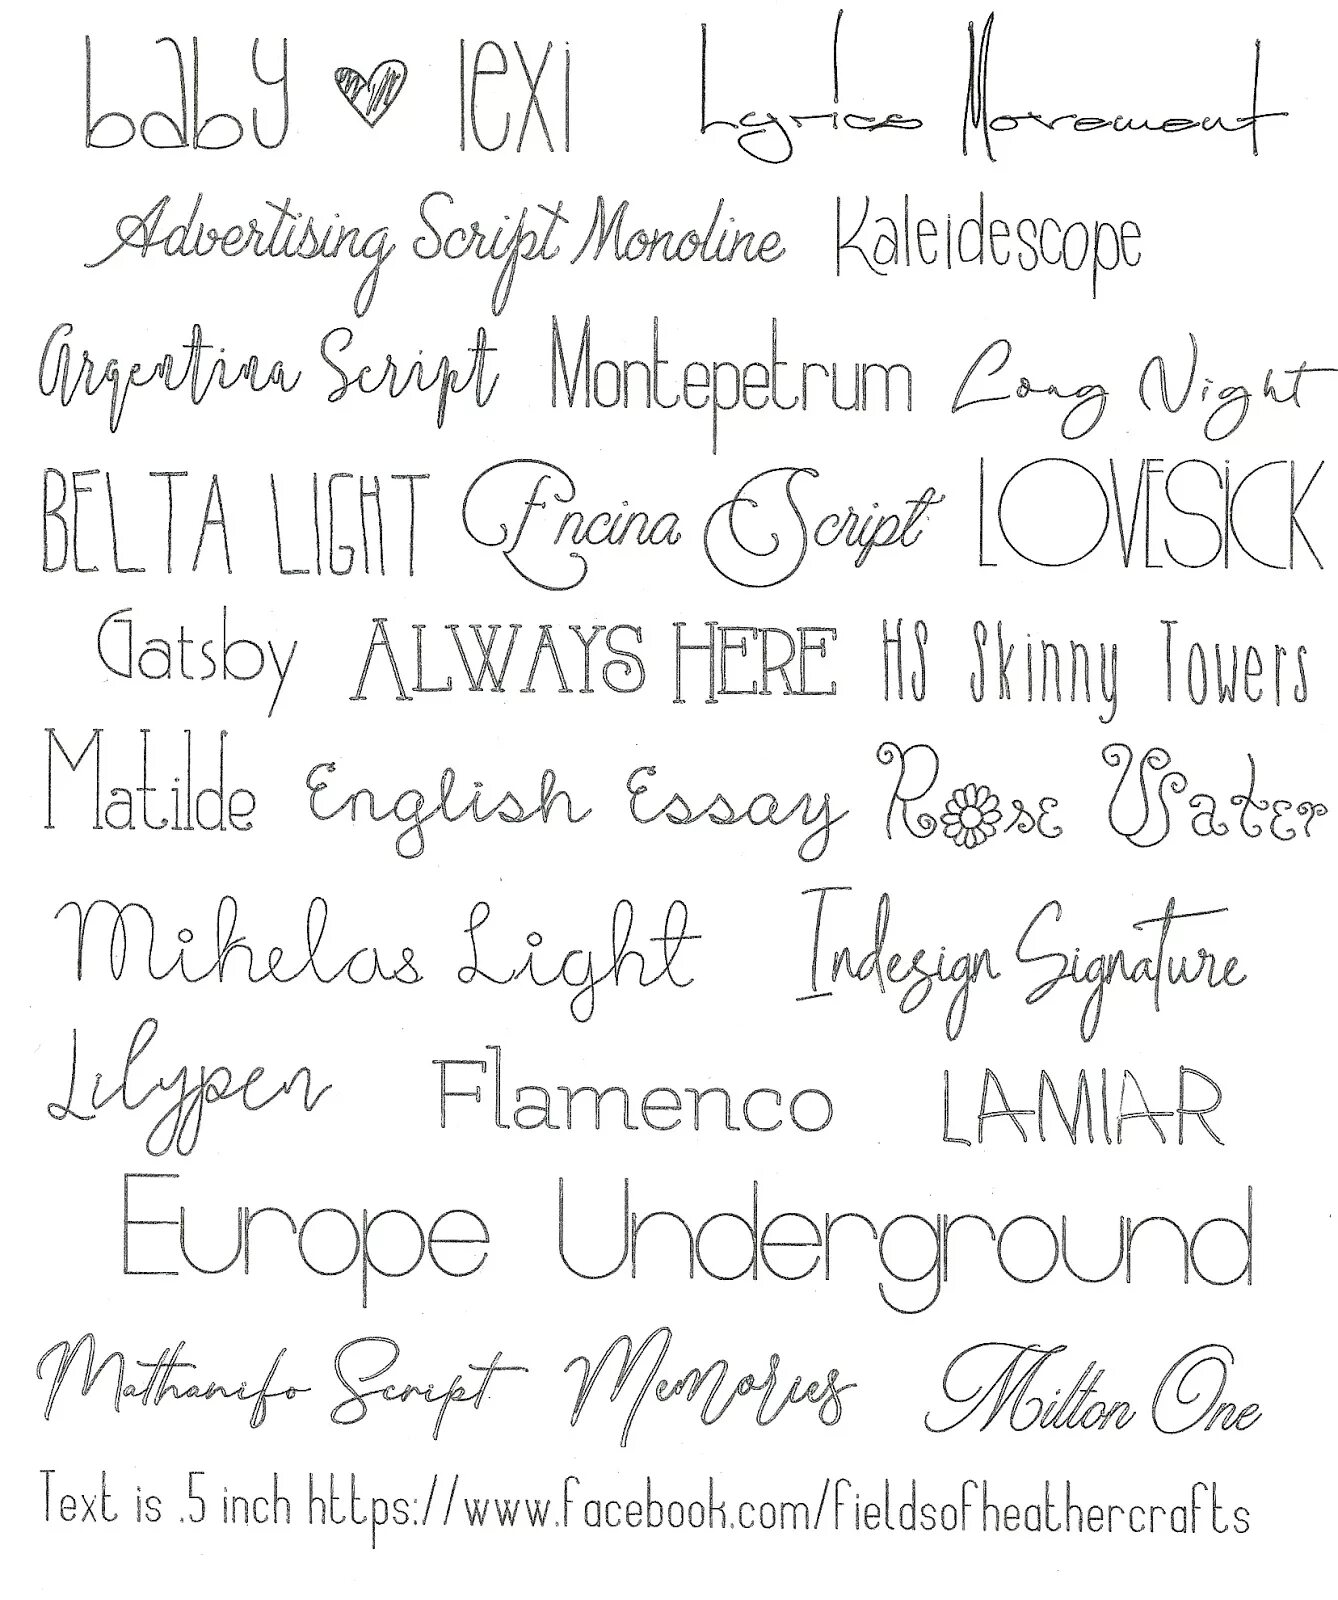 baby lexi Lyrics Movement
Advertising Script Monoline Kaleidescope
Argentina Script Montepetrum Long Night
BELTA LIGHT Encina Script LOVESICK
Gatsby ALWAYS HERE HS Skinny Towers
Matilde English Essay Rose Water
Mikelas Light Indesign Signature
Lilypen Flamenco LAMIAR
Europe Underground
Mathanifo Script Memories Milton One
Text is .5 inch https://www.facebook.com/fieldsofheathercrafts